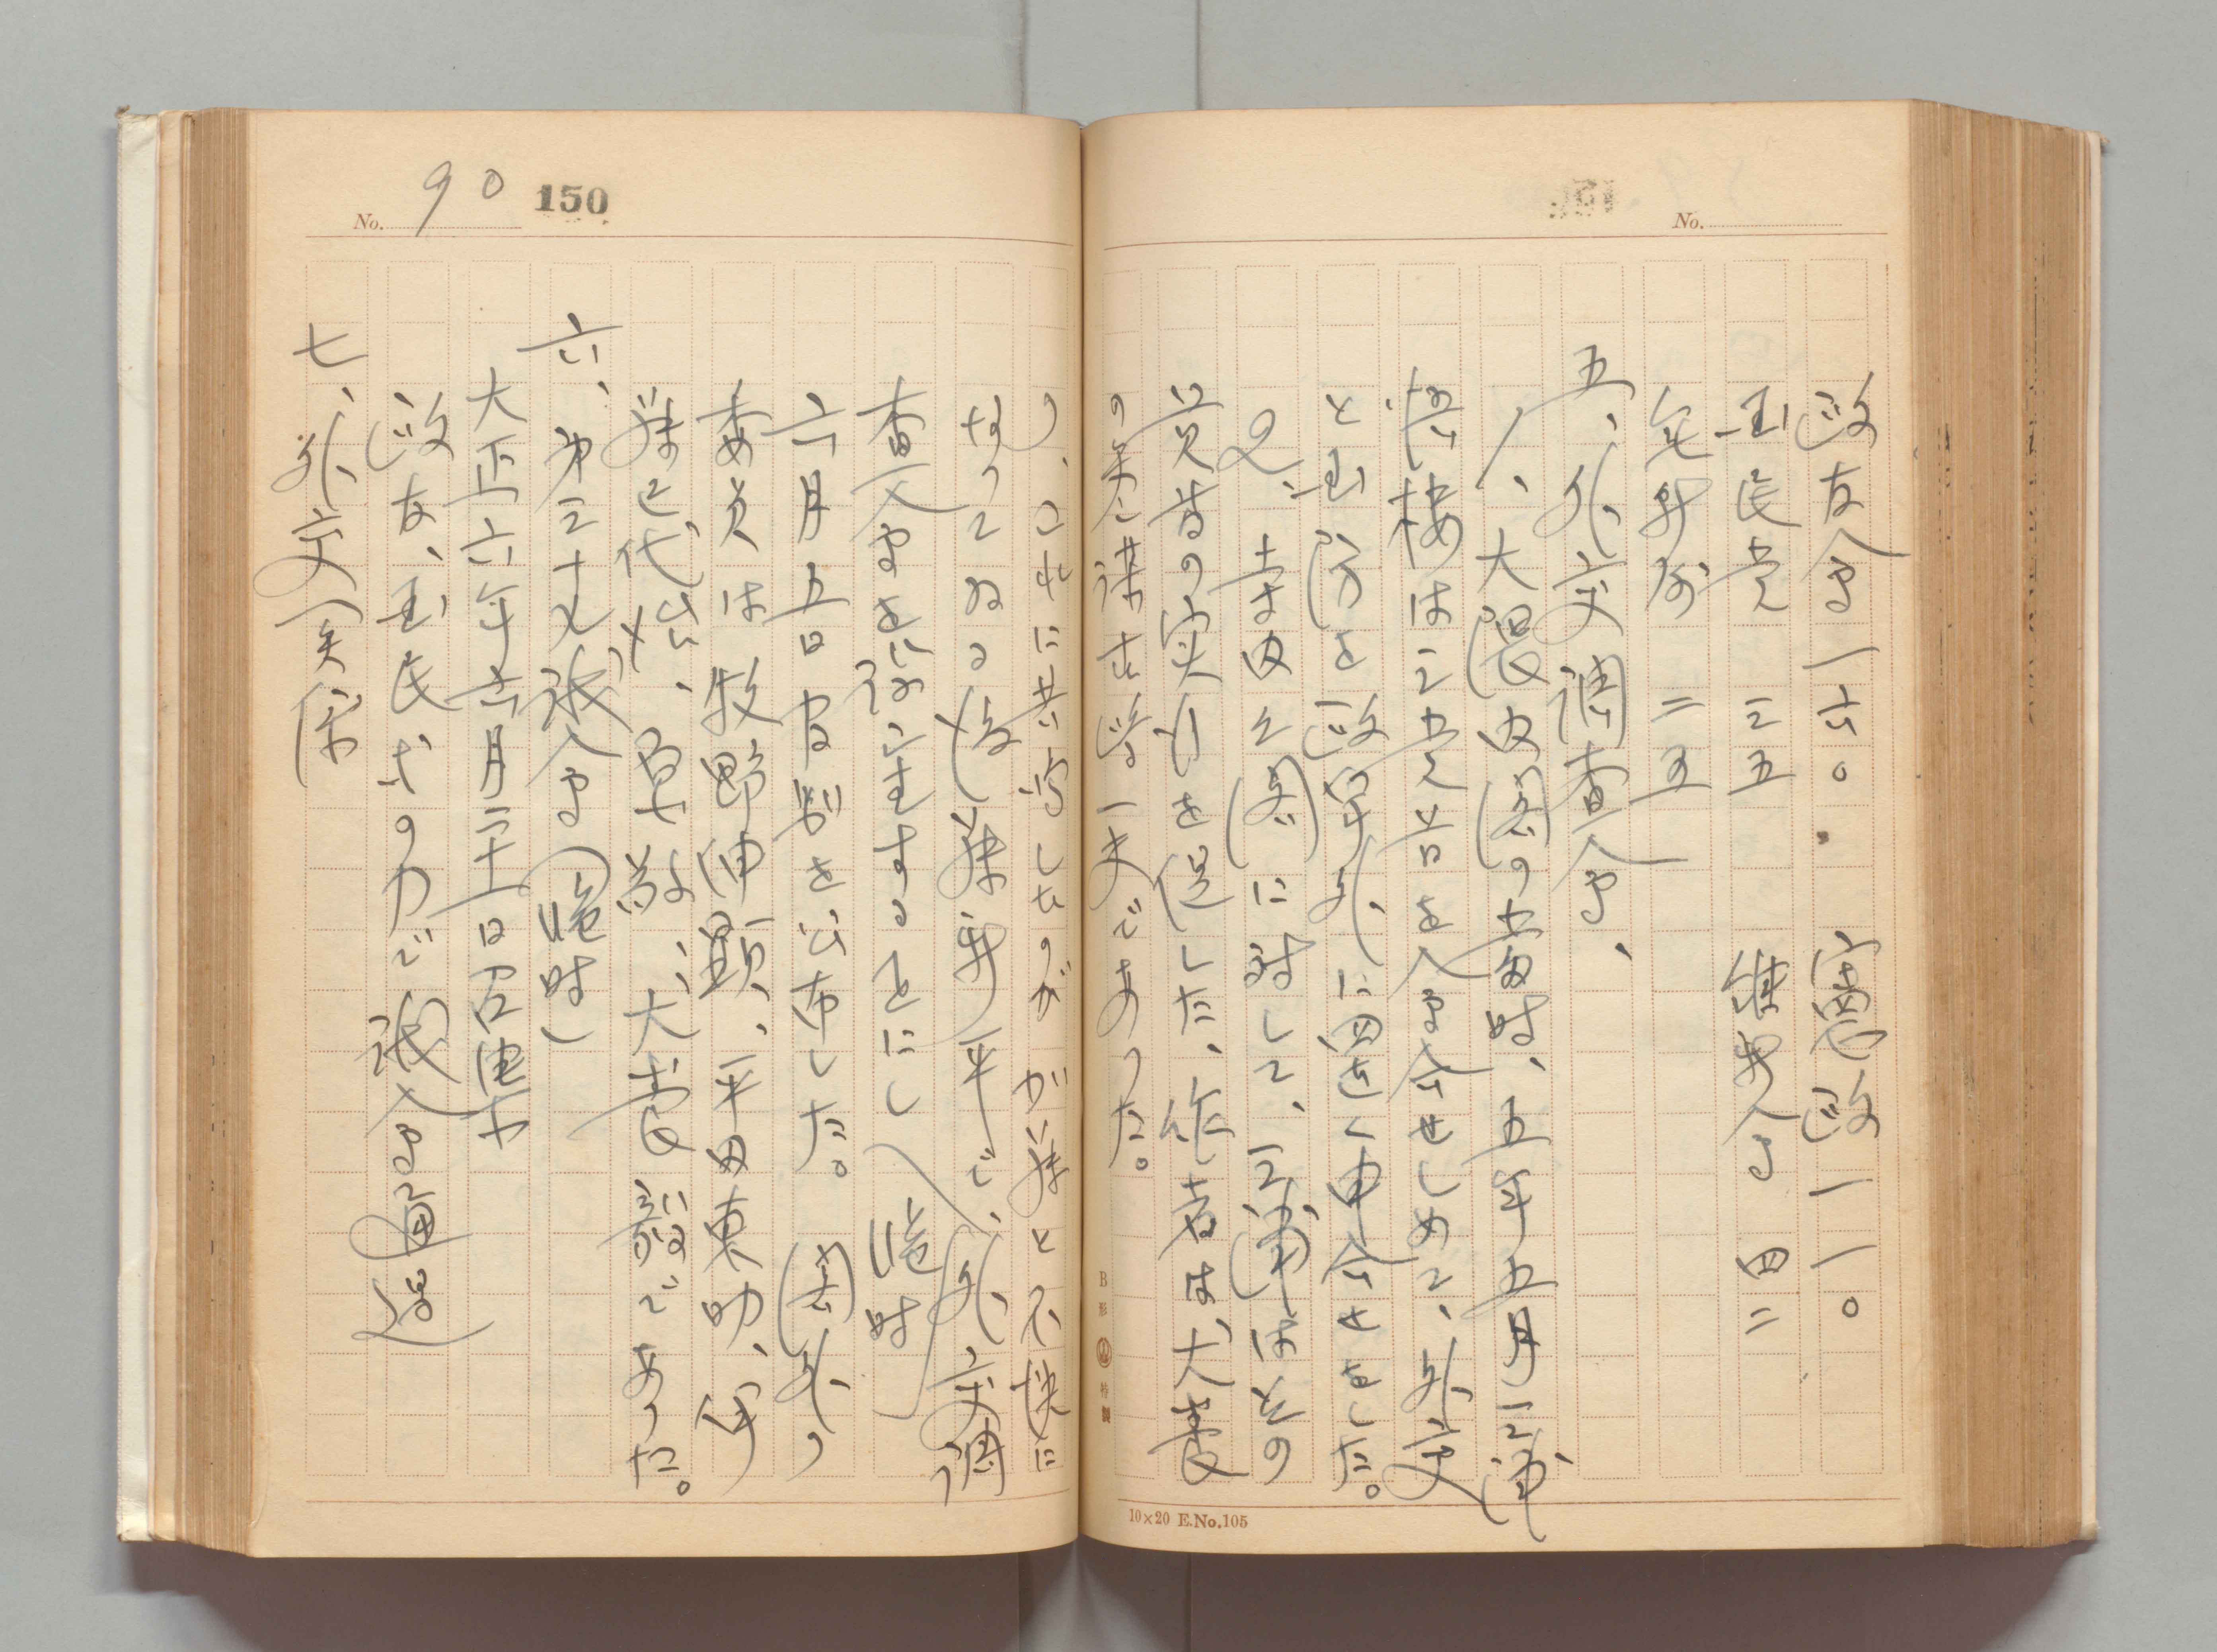 政友会一六〇 憲政一一〇
国民党 三五 維新会 四二
無所属 二五
五、外交調査会、
1、大隈内閣の当時、五年五月三浦
梧楼は三党首を会合せしめて、外交
と国防を政争外に置く申合せをした。
2、寺内々閣に対して、三浦はその
覚書の実行を促した、作者は、犬養
の参謀古島一夫であった。
これに共鳴したのが が藤と不快に
なってゐる後藤新平で、外交調
査会を することにし(臨時)
六月五日官制を公布した。閣外の
委員は牧野伸顕、平田東助、伊
藤巳代治、原敬、犬養毅であった。
六、第三十九議会(臨時)
大正六年六月二十一日召集
政友、国民 の力で議会通過
七、外交関係
No. 90 150
No.
B形 特製
10×20 E.No.105